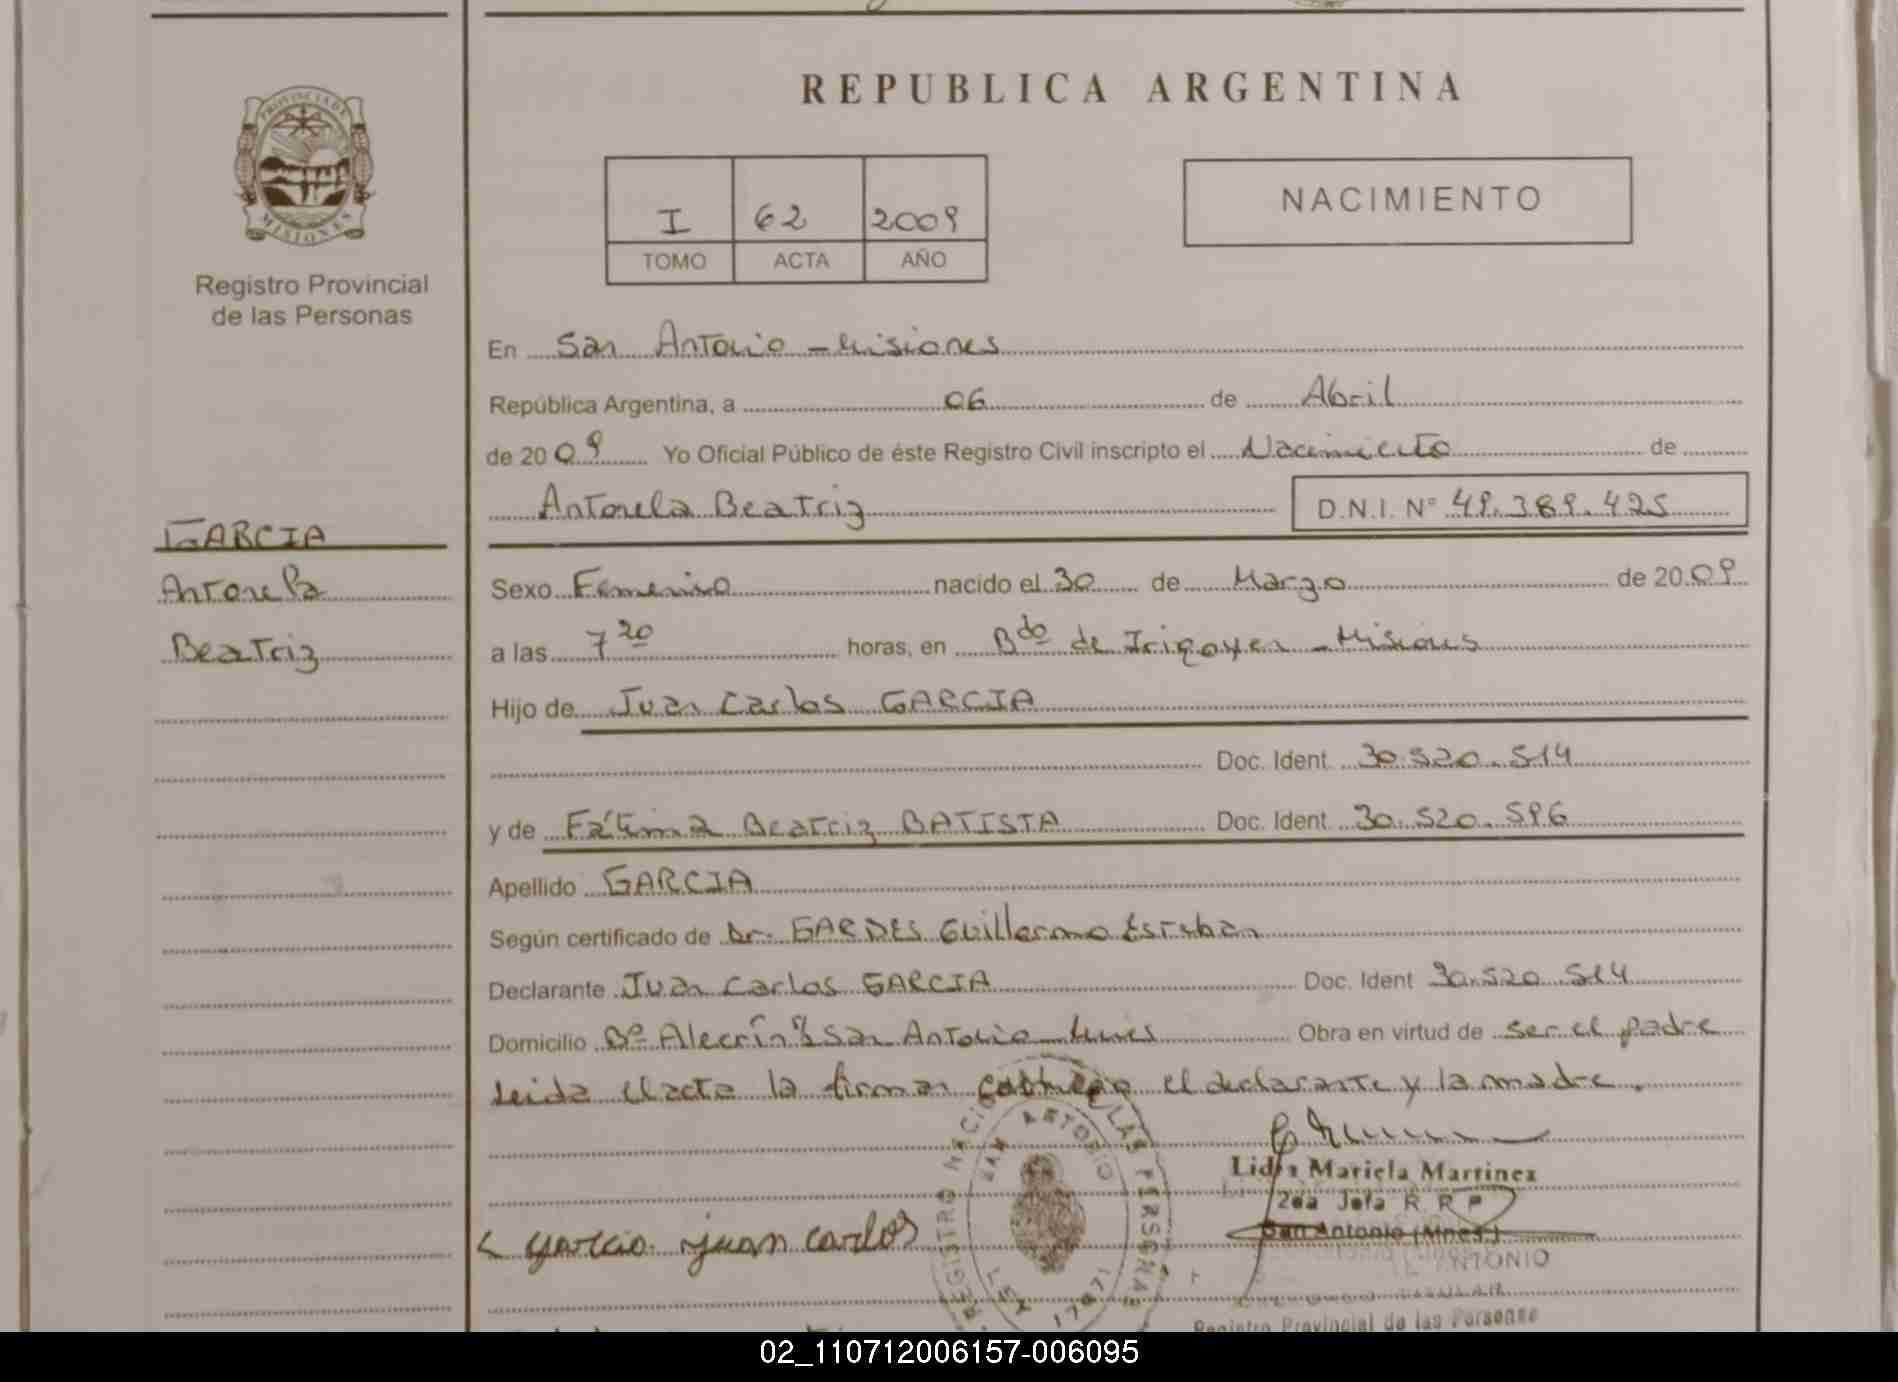 REPUBLICA ARGENTINA
PROVINCIA DE
MISIONES
Registro Provincial
de las Personas
I 62 2009
TOMO ACTA AÑO
NACIMIENTO
En San Antonio - Misiones
República Argentina, a 06 de Abril
de 2009 Yo Oficial Público de éste Registro Civil inscripto el Nacimiento de
Antonela Beatriz D.N.I. Nº 49.389.425
GARCIA
Antonela
Beatriz
Sexo Femenino nacido el 30 de Marzo de 2009
a las 7 20 horas, en Bdo de Irigoyen - Misiones
Hijo de Juan Carlos GARCIA
Doc. Ident 30.520.514
y de Fátima Beatriz BATISTA Doc. Ident 30.520.596
Apellido GARCIA
Según certificado de Dr. GARDES Guillermo Esteban
Declarante Juan Carlos GARCIA Doc. Ident 30.520.514
Domicilio Bº Alecrín San Antonio Obra en virtud de ser el padre
Leida el acta la firman conmigo el declarante y la madre.
REGISTRO LAS PERSONAS
SAN ANTONIO
Lidia Mariela Martinez
2da Jefa R R P
San Antonio (Mnes.)
garcia juan carlos
ANTONIO
Registro Provincial de las Personas
02_110712006157-006095